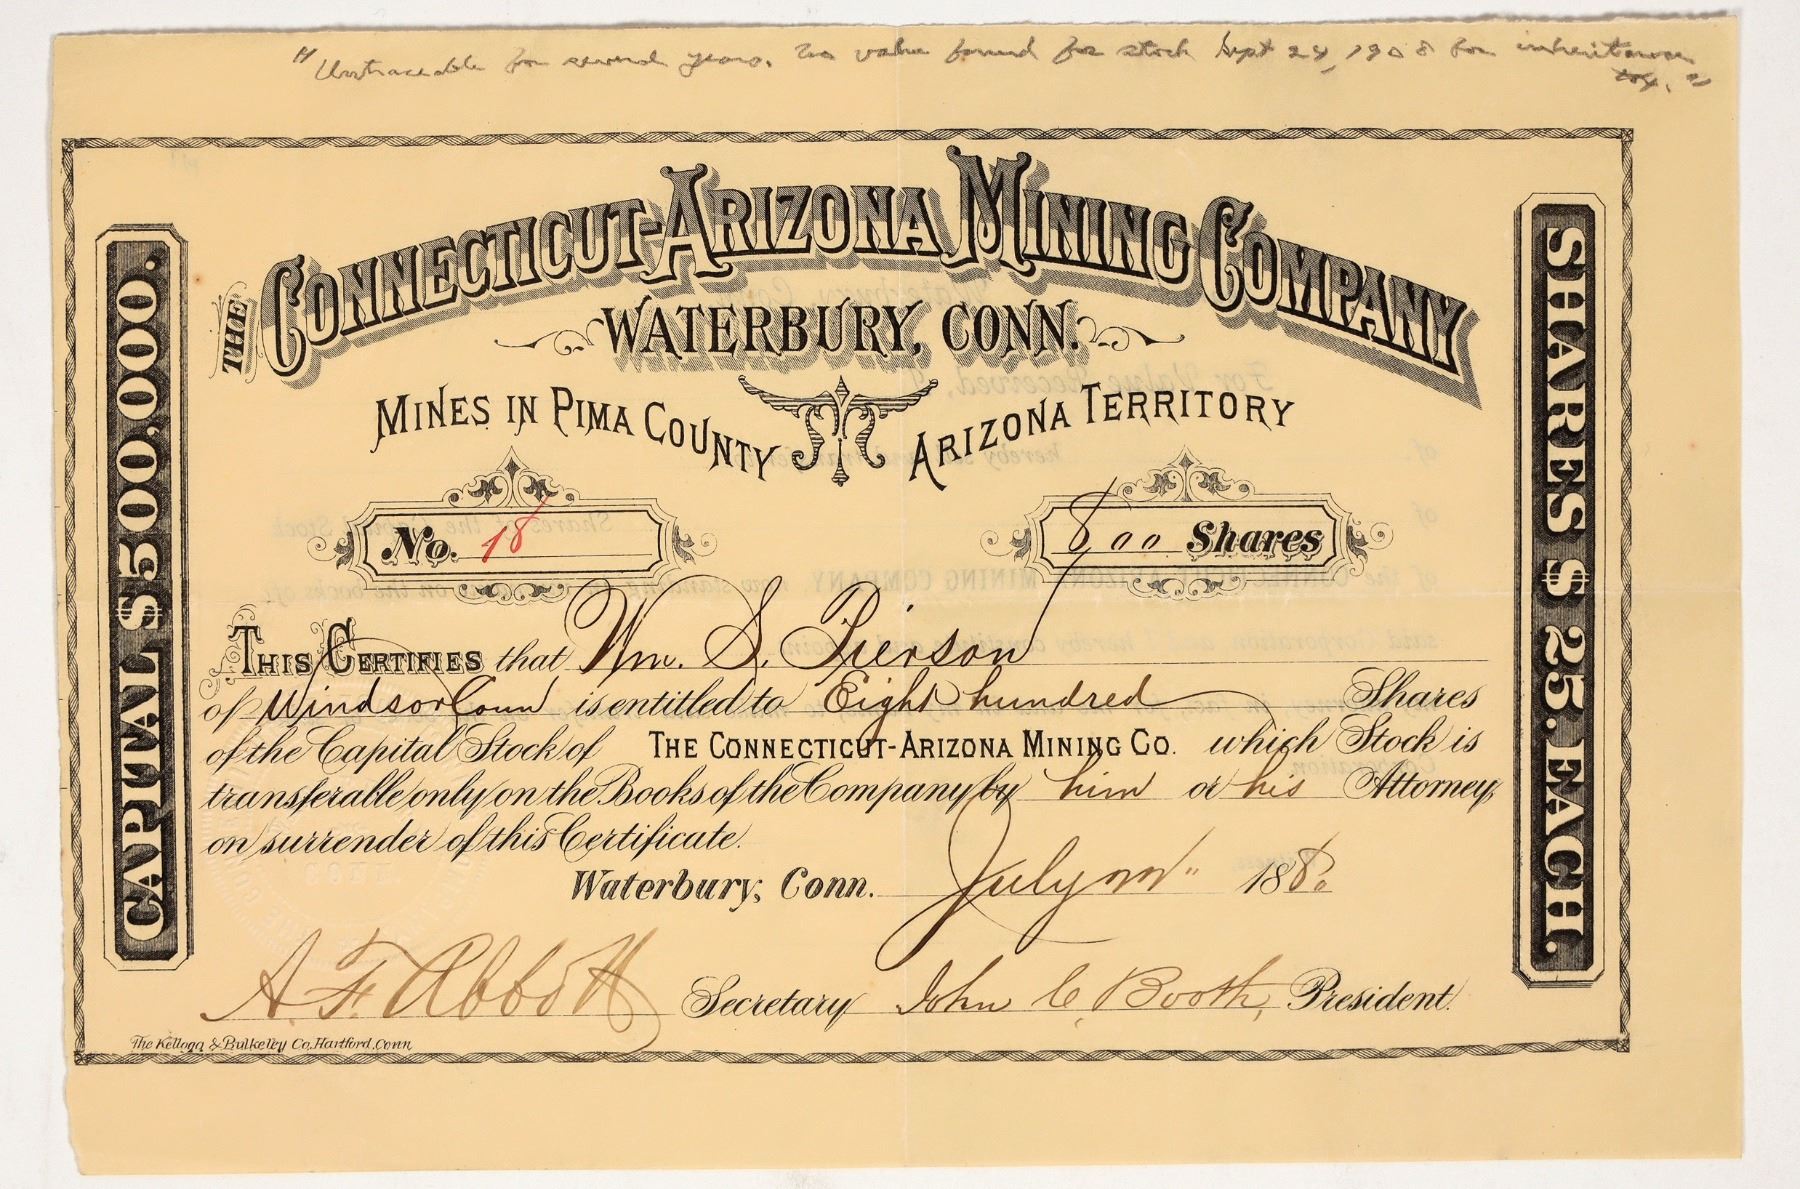 " Untraceable for several years. No value found for stock Sept 24, 1908 for inheritance
tax. "
THE CONNECTICUT-ARIZONA MINING COMPANY
WATERBURY, CONN.
MINES IN PIMA COUNTY ARIZONA TERRITORY
CAPITAL $500,000.
SHARES $25. EACH.
No. 18
800 Shares
THIS CERTIFIES that Wm. S. Pierson
of Windsor Conn is entitled to Eight hundred Shares
of the Capital Stock of THE CONNECTICUT-ARIZONA MINING CO. which Stock is
transferable only on the Books of the Company by him or his Attorney
on surrender of this Certificate.
Waterbury, Conn. July 188
A. F. Abbott Secretary John C. Booth, President.
The Kellogg & Bulkeley Co. Hartford, Conn